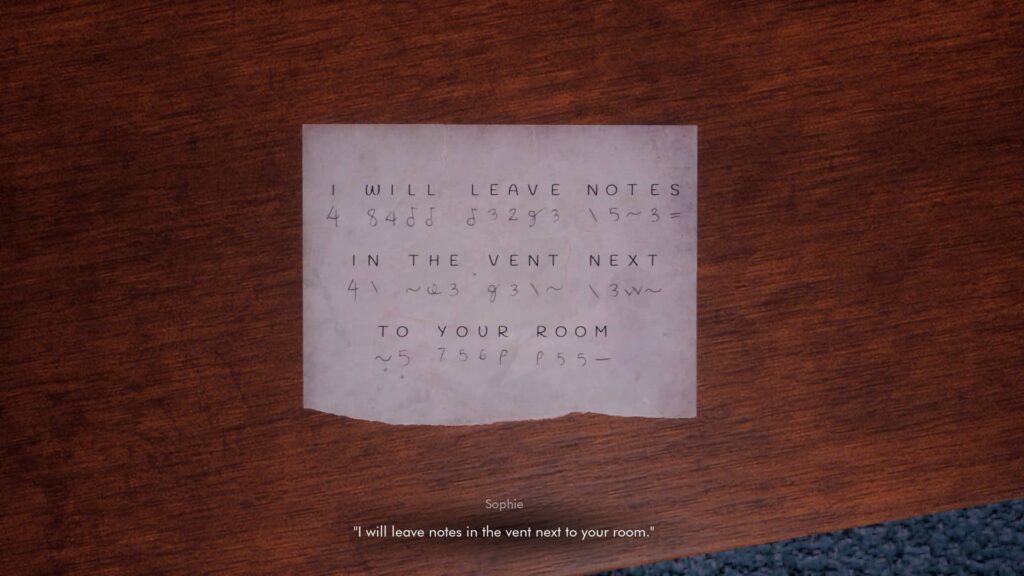 I WILL LEAVE NOTES
4 84♪♪ ♪32g3 \5~3=
IN THE VENT NEXT
4\ ~@3 g3\~ \3w~
TO YOUR ROOM
~5 756P P55—
Sophie
"I will leave notes in the vent next to your room."